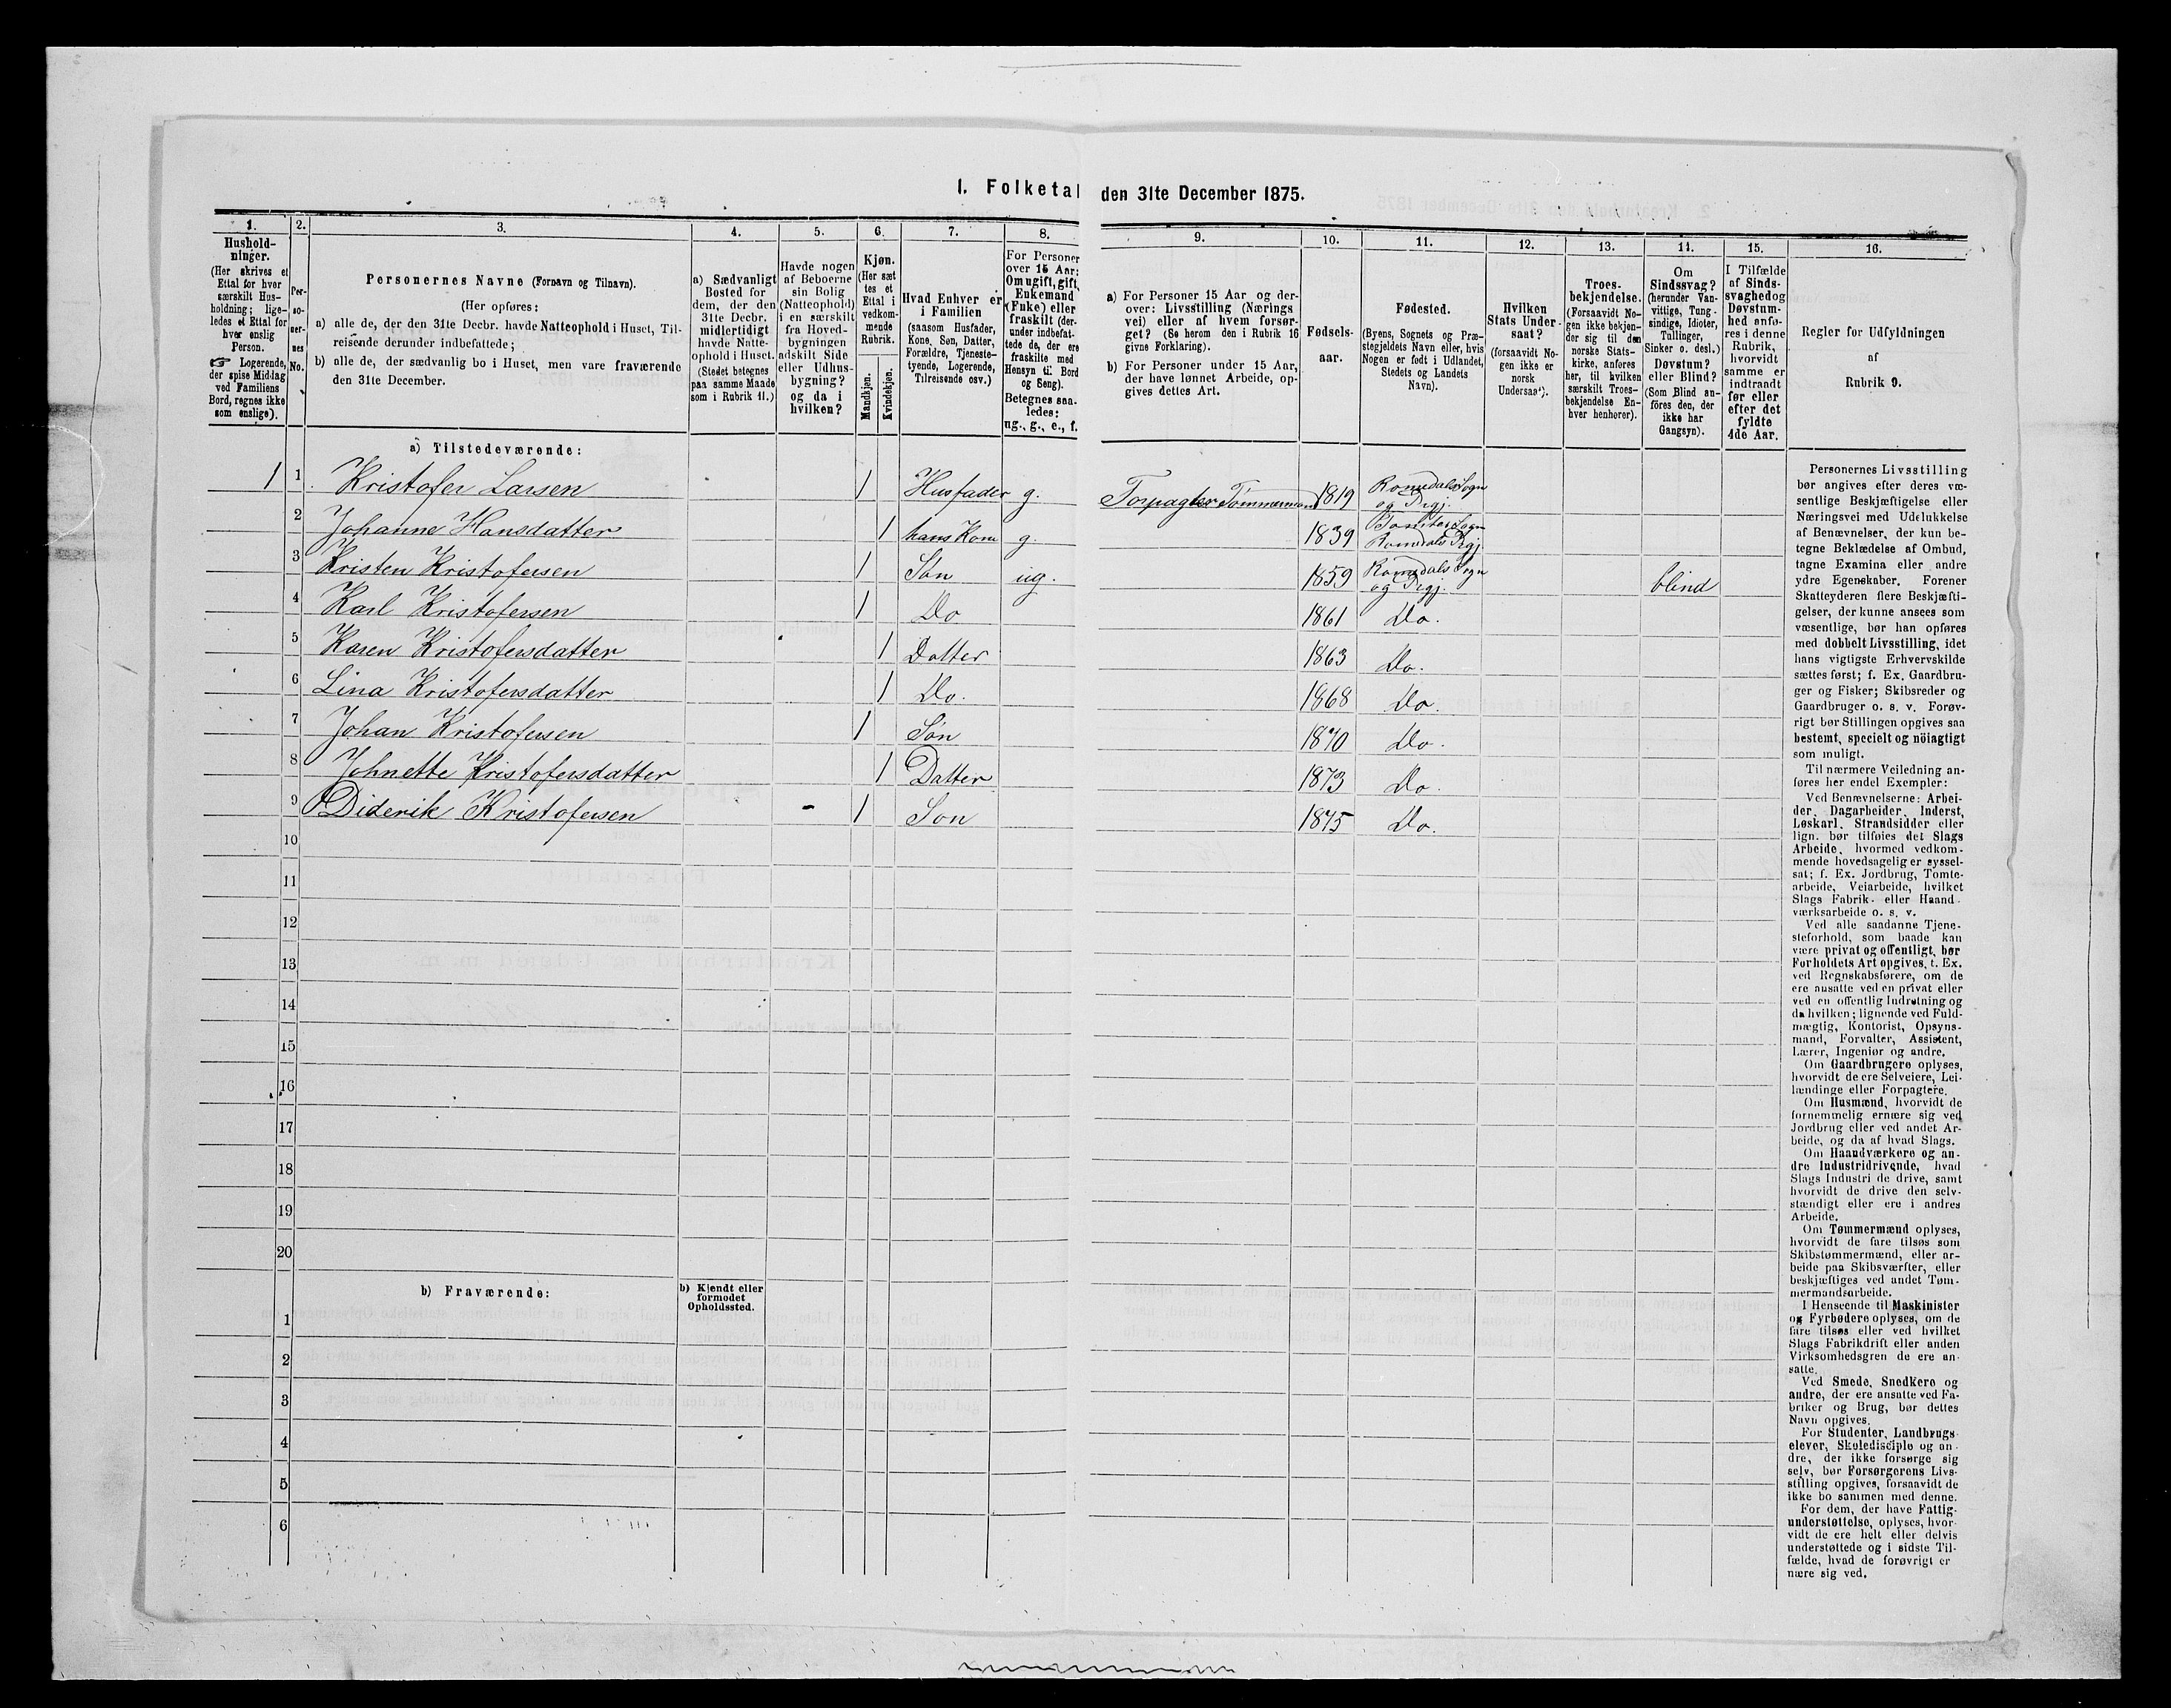 I. Folketal den 31te December 1875.
1.
Hushold-
ninger.
(Her skrives et
Ettal for hver
særskilt Hus-
holdning; lige-
ledes et Ettal for
hver enslig
Person.
☞ Logerende,
der spise Middag
ved Familiens
Bord, regnes ikke
som enslige).
2.
Per-
so-
ner-
nes
No.
3.
Personernes Navne (Fornavn og Tilnavn).
(Her opføres:
a) alle de, der den 31te Decbr. havde Natteophold i Huset, Til-
reisende derunder indbefattede;
b) alle de, der sædvanlig bo i Huset, men vare fraværende
den 31te December.
4.
a) Sædvanligt
Bosted for
dem, der den
31te Decbr.
midlertidigt
havde Natte-
ophold i Huset.
(Stedet betegnes
paa samme Maade
som i Rubrik 11.)
5.
Havde nogen
af Beboerne
sin Bolig
(Natteophold)
i en særskilt
fra Hoved-
bygningen
adskilt Side
eller Udhus-
bygning?
og da i
hvilken?
6.
Kjøn.
(Her sæt
tes et
Ettal i
vedkom-
mende
Rubrik.
Mandkjøn.
Kvindekjøn.
7.
Hvad Enhver er
i Familien
(saasom Husfader,
Kone, Søn, Datter,
Forældre, Tjeneste-
tyende, Logerende,
Tilreisende osv.)
8.
For Personer
over 15 Aar:
Om ugift, gift,
Enkemand
(Enke) eller
fraskilt (der-
under indbefat-
tede de, der ere
fraskilte med
Hensyn til Bord
og Seng).
Betegnes saa-
ledes:
ug., g., e., f.
9.
a) For Personer 15 Aar og der-
over: Livsstilling (Nærings
vei) eller af hvem forsør-
get? (Se herom den i Rubrik 16
givne Forklaring).
b) For Personer under 15 Aar,
der have lønnet Arbeide, op-
gives dettes Art.
10.
Fødsels-
aar.
11.
Fødested.
(Byens, Sognets og Præ-
stegjeldets Navn eller, hvis
Nogen er født i Udlandet,
Stedets og Landets
Navn).
12.
Hvilken
Stats Under-
saat?
(forsaavidt No-
gen ikke er
norsk
Undersaat).
13.
Troes-
bekjendelse.
(Forsaavidt No-
gen ikke bekjen-
der sig til den
norske Stats-
kirke, anføres
her, til hvilken
særskilt Troes-
bekjendelse En-
hver henhører).
14.
Om
Sindssvag?
(herunder Van-
vittige, Tung-
sindige, Idioter,
Tullinger,
Sinker o. desl.)
Døvstum?
eller Blind?
(Som Blind an-
føres den, der
ikke har
Gangsyn).
15.
I Tilfælde
af Sinds-
svaghed og
Døvstum-
hed anfø-
res i denne
Rubrik,
hvorvidt
samme er
indtraadt
før eller
efter det
fyldte
4de Aar.
16.
Regler for Udfyldningen
af
Rubrik 9.
a) Tilstedeværende:
1 1 Kristofer Larsen 1 Husfader g. Forpagter Tømmermand 1819 Romedals Sogn og Prgj.
2 Johanne Hansdatter 1 hans Kone g. 1839 Sogn Romedals Prgj.
3 Kristen Kristofersen 1 Søn ug. 1859 Romedals Sogn og Prgj. blind
4 Karl Kristofersen 1 Do 1861 Do.
5 Karen Kristofersdatter 1 Datter 1863 Do.
6 Lina Kristofersdatter 1 Do. 1868 Do.
7 Johan Kristofersen 1 Søn 1870 Do.
8 Johnette Kristofersdatter 1 Datter 1873 Do.
9 Diderik Kristofersen - 1 Søn 1875 Do.
10
11
12
13
14
15
16
17
18
19
20
b) Fraværende:
b) Kjendt eller
formodet
Opholdssted.
1
2
3
4
5
6
Personernes Livsstilling
bør angives efter deres væ-
sentlige Beskjæftigelse eller
Næringsvei med Udelukkelse
af Benævnelser, der kun be-
tegne Beklædelse af Ombud,
tagne Examina eller andre
ydre Egenskaber. Forener
Skatteyderen flere Beskjæfti-
gelser, der kunne ansees som
væsentlige, bør han opføres
med dobbelt Livsstilling, idet
hans vigtigste Erhvervskilde
sættes først; f. Ex. Gaardbru-
ger og Fisker; Skibsreder og
Gaardbruger o. s. v. Forøv-
rigt bør Stillingen opgives saa
bestemt, specielt og nöiagtigt
som muligt.
Til nærmere Veiledning an-
føres her endel Exempler:
Ved Benævnelserne: Arbei-
der, Dagarbeider, Inderst,
Løskarl, Strandsidder eller
lign. bør tilføies det Slags
Arbeide, hvormed vedkom-
mende hovedsagelig er syssel-
sat; f. Ex. Jordbrug, Tomte-
arbeide, Veiarbeide, hvilket
Slags Fabrik- eller Haand-
værksarbeide o. s. v.
Ved alle saadanne Tjene-
steforhold, som baade kan
være privat og offentligt, bør
Forholdets Art opgives, t. Ex.
ved Regnskabsførere, om de
ere ansatte ved en privat eller
ved en offentlig Indretning og
da hvilken; lignende ved Fuld-
mægtig, Kontorist, Opsyns-
mand, Forvalter, Assistent,
Lærer, Ingeniør og andre.
Om Gaardbrugere oplyses,
hvorvidt de ere Selveiere, Lei-
lændinge eller Forpagtere.
Om Husmænd, hvorvidt de
fornemmelig ernære sig ved
Jordbrug eller ved andet Ar-
beide, og da af hvad Slags.
Om Haandværkere og an-
dre Industridrivende, hvad
Slags Industri de drive, samt
hvorvidt de drive den selv-
stændigt eller ere i andres
Arbeide.
Om Tømmermænd oplyses,
hvorvidt de fare tilsøs som
Skibstømmermænd, eller ar-
beide paa Skibsværfter, eller
beskjæftiges ved andet Tøm-
mermandsarbeide.
I Henseende til Maskinister
og Fyrbødere oplyses, om de
fare tilsøs eller ved hvilket
Slags Fabrikdrift eller anden
Virksomhedsgren de ere an-
satte.
Ved Smede, Snedkere og
andre, der ere ansatte ved Fa-
briker og Brug, bør dettes
Navn opgives.
For Studenter, Landbrugs-
elever, Skoledisciple og an-
dre, der ikke forsørge sig
selv, bør Forsørgerens Livs-
stilling opgives, forsaavidt de
ikke bo sammen med denne.
For dem, der have Fattig-
understøttelse, oplyses, hvor-
vidt de ere helt eller delvis
understøttede og i sidste Til-
fælde, hvad de forøvrigt er
nære sig ved.